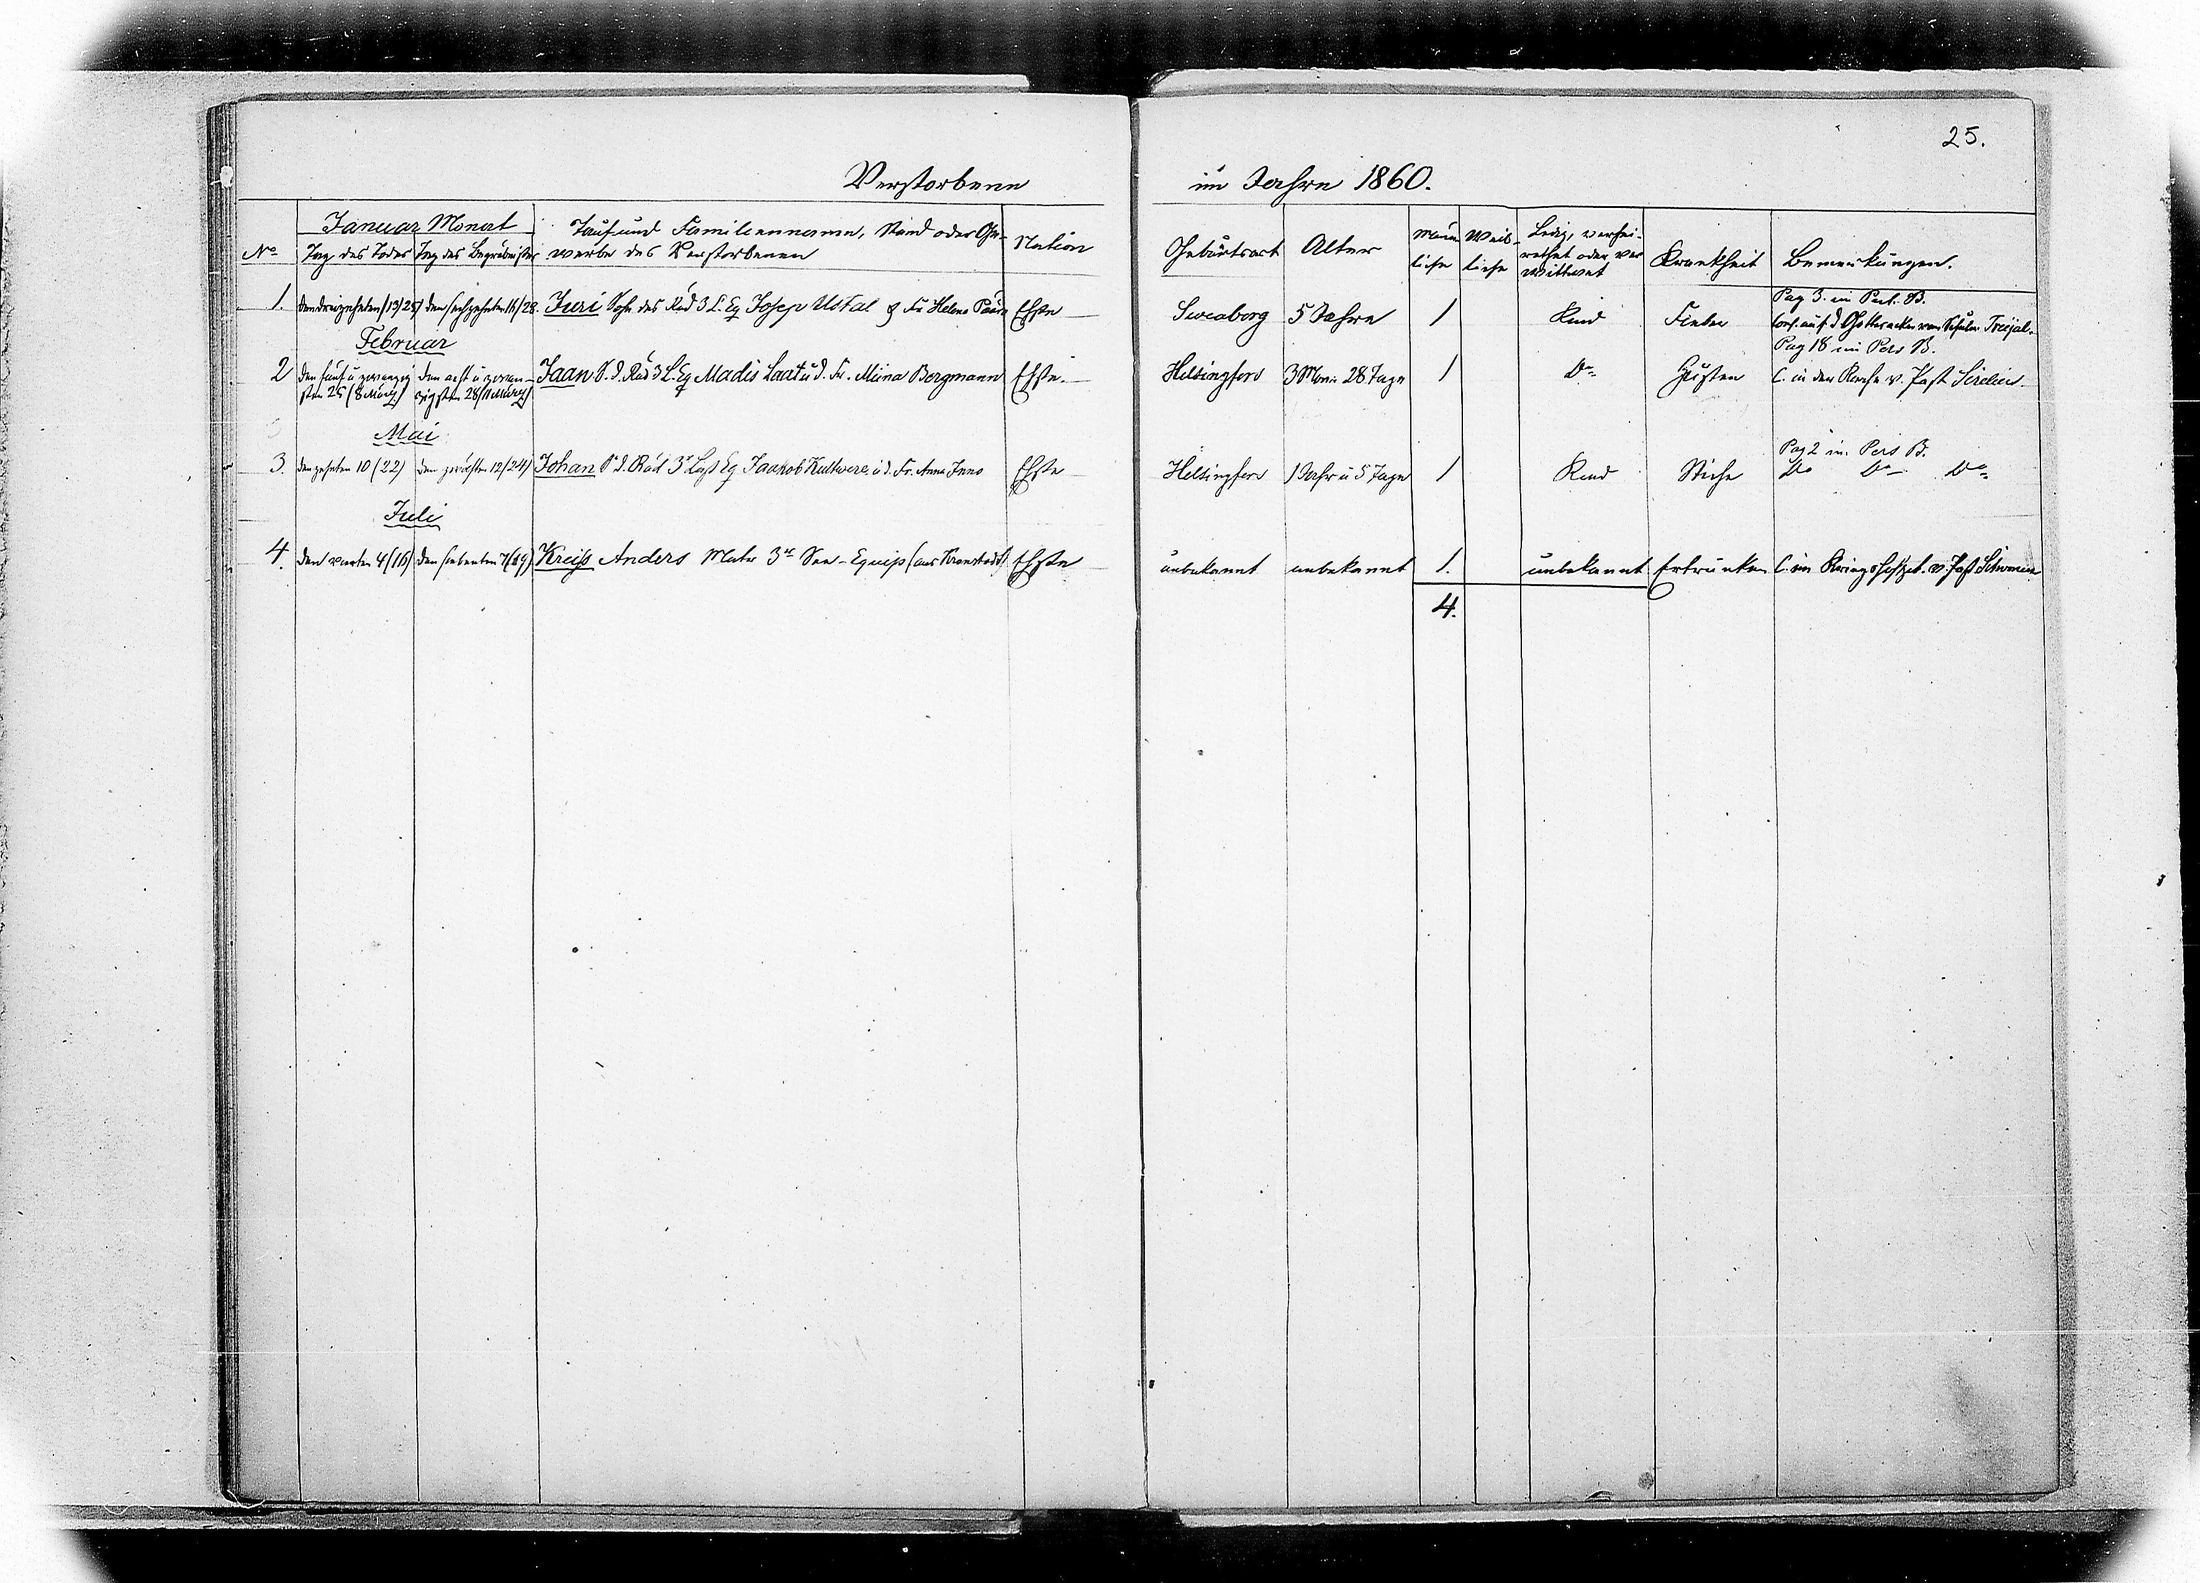 25.
Verstorbene im Jahre 1860.
Januar Monat
No Tag des Todes Tag des Begräbnisses Tauf und Familiennamen, Stand oder Gewerbe des Verstorbenen Nation Geburtsort Alter Männliche Weibliche Ledig, verheirathet oder verwittwet Krankheit Bemerkungen.
Pag 3. im Pers. B.
1. den dreizehnten /13/25/ den sechzehnten 16/28. Juri Sohn des Rud 3 L. Eq Josep Ustal & Fr Helena Ehste Sweaborg 5 Jahre 1 Kind Fieber auf d Gottesacker vom
Februar
Pag 18 im Pers B.
2 den fünf u zwanzigsten 25 (8 März) den acht u zwanzigsten 28/11 März) Jaan S. d. Rud 3 L. Eq Madis Laat u d. Fr. Miina Bergmann Ehste. Helsingfors 3 Mon. 28 Tage 1 Do Husten C. in der Kirche v. Past Sirelius
Mai
Pag 2 im Pers B.
3. den zehnten 10 (22) den zwölften 12/24) Johan S. d. Rud 3r Last Eq Jaakob u d. Fr. Anna Ehste Helsingfors 1 Jahr u 5 Tage 1 Kind Stiche Do Do Do
Juli
4. den vierten 4/(16) den siebenten 7(19) Kreiss Anders Matr 3r See-Equip (aus Kronstadt) Ehste unbekannt unbekannt 1. unbekannt Ertrunken C. im v. Past
4.